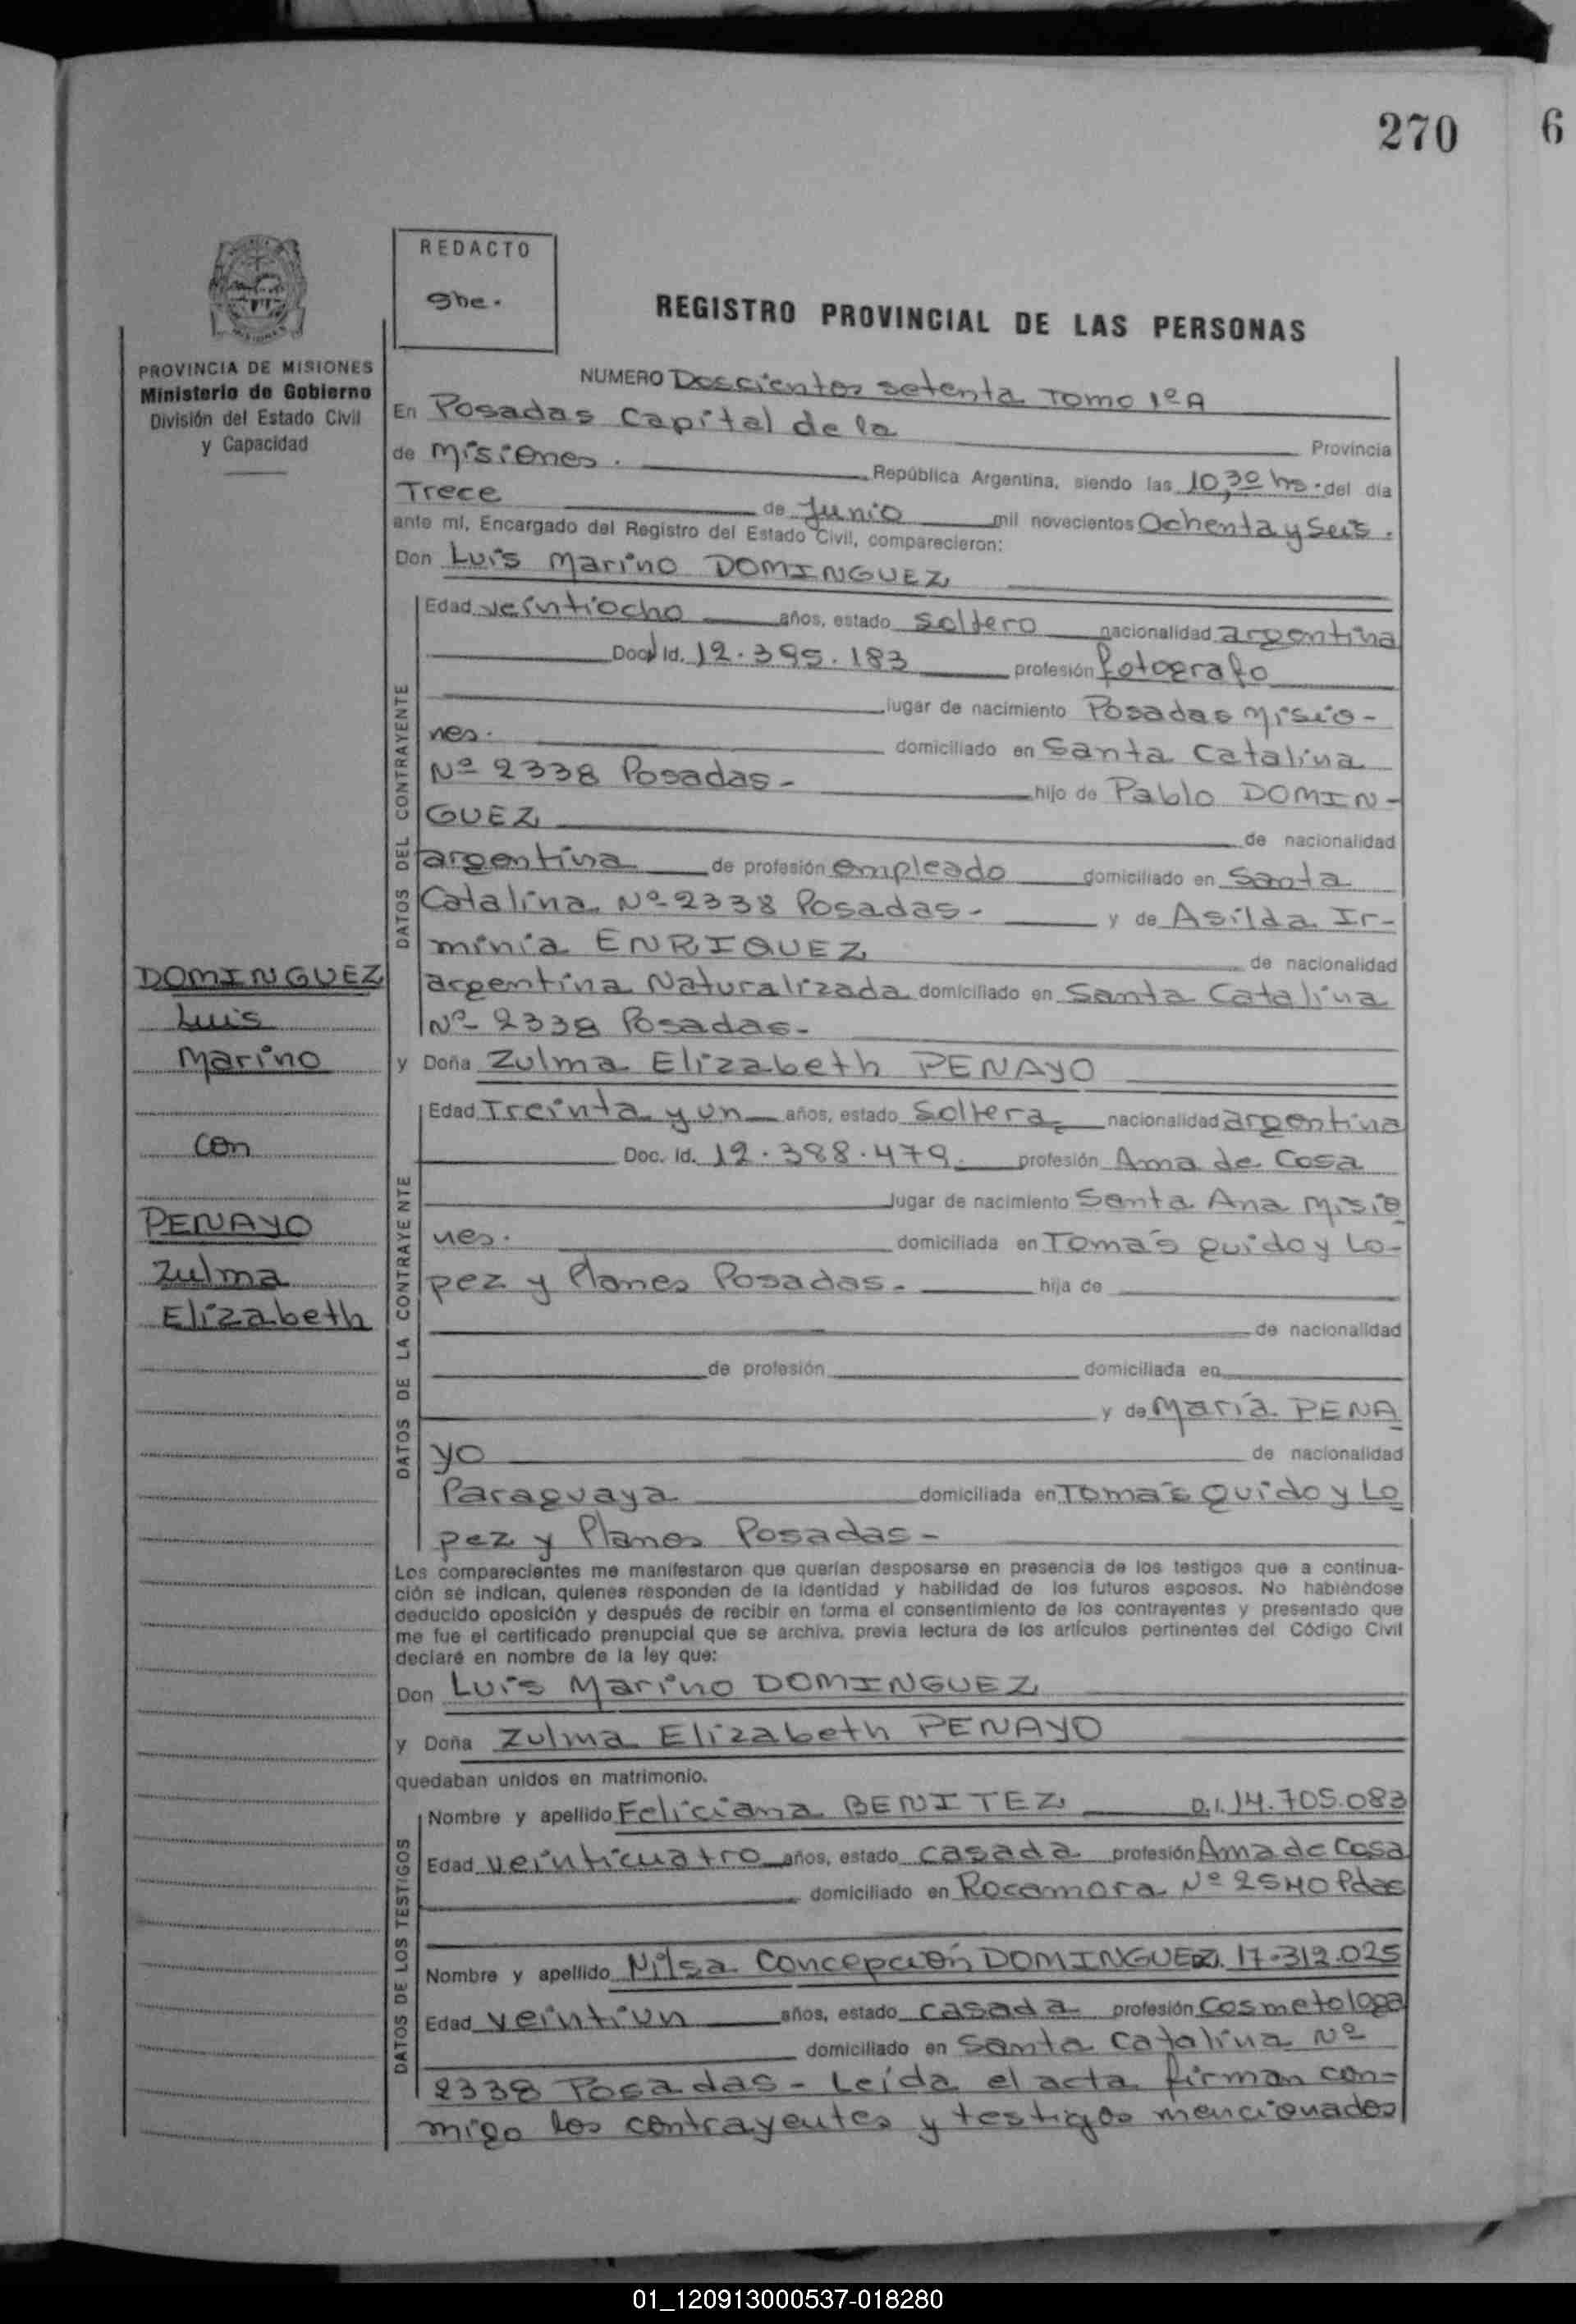 270
6
REDACTO
gne.
REGISTRO PROVINCIAL DE LAS PERSONAS
PROVINCIA DE MISIONES
Ministerio de Gobierno
División del Estado Civil
y Capacidad
NUMERO Doscientos setenta Tomo 1º A
En Posadas Capital de la Provincia
de Misiones. República Argentina, siendo las 10,30 hs. del día
Trece de Junio mil novecientos Ochenta y Seis.
ante mí, Encargado del Registro del Estado Civil, comparecieron:
Don Luis Marino DOMINGUEZ
DATOS DEL CONTRAYENTE
Edad veintiocho años, estado soltero nacionalidad argentina
Doc. Id. 12.395.183 profesión fotografo
lugar de nacimiento Posadas Misio-
nes. domiciliado en Santa Catalina
Nº 2338 Posadas- hijo de Pablo DOMIN-
GUEZ de nacionalidad
argentina de profesión empleado domiciliado en Santa
Catalina Nº 2338 Posadas- y de Asilda Ir-
minia ENRIQUEZ de nacionalidad
argentina Naturalizada domiciliado en Santa Catalina
Nº 2338 Posadas-
DOMINGUEZ
Luis
Marino
con
PENAYO
Zulma
Elizabeth
y Doña Zulma Elizabeth PENAYO
DATOS DE LA CONTRAYENTE
Edad Treinta y un años, estado Soltera nacionalidad argentina
Doc. Id. 12.388.479. profesión Ama de Casa
lugar de nacimiento Santa Ana Misio
nes. domiciliada en Tomás guido y Lo-
pez y Planes Posadas- hija de
de nacionalidad
de profesión domiciliada en
y de María PENA
YO de nacionalidad
Paraguaya domiciliada en Tomás Guido y Lo
pez y Planes Posadas-
Los comparecientes me manifestaron que querían desposarse en presencia de los testigos que a continua-
ción se indican, quienes responden de la identidad y habilidad de los futuros esposos. No habiéndose
deducido oposición y después de recibir en forma el consentimiento de los contrayentes y presentado que
me fue el certificado prenupcial que se archiva, previa lectura de los artículos pertinentes del Código Civil
declaré en nombre de la ley que:
Don Luis Marino DOMINGUEZ
y Doña Zulma Elizabeth PENAYO
quedaban unidos en matrimonio.
DATOS DE LOS TESTIGOS
Nombre y apellido Feliciana BENITEZ D.I. 14.705.083
Edad veinticuatro años, estado casada profesión Ama de Casa
domiciliado en Rocamora Nº 2540 Pdas
Nombre y apellido Nilsa Concepción DOMINGUEZ. 17.312.025
Edad veintiun años, estado casada profesión Cosmetologa
domiciliado en Santa Catalina Nº
2338 Posadas- Leída el acta firman con=
migo los contrayentes y testigos mencionados
01_120913000537-018280